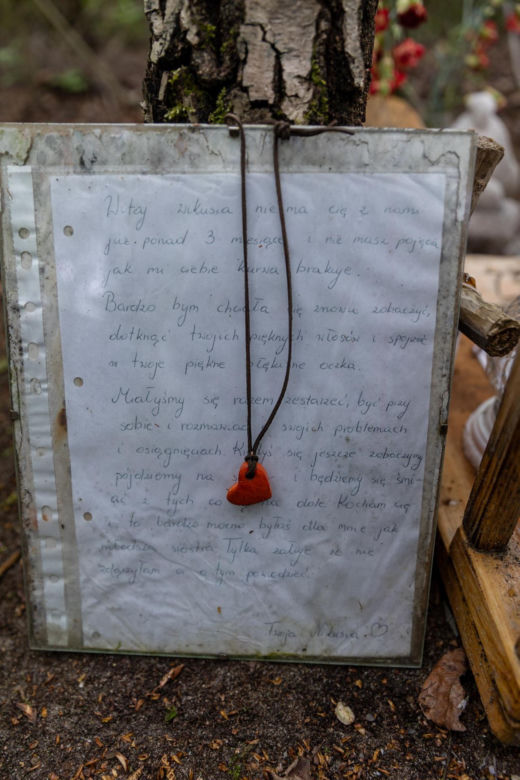 Witaj Wikusia nie ma cię z nami
już ponad 3 miesiące i nie masz pojęcia
jak mi ciebie kurna brakuje.
Bardzo bym chciała się znowu zobaczyć,
dotknąć twoich pięknych włosów i spojrzeć
w twoje piękne błękitne oczka.
Miałyśmy się razem zestarzeć, być przy
sobie i rozmawiać o swoich problemach
i osiągnięciach. Kiedyś się jeszcze zobaczymy
pójdziemy na i będziemy się śmi-
ać z tych co na dole Kocham cię
to bardzo mocno byłaś dla mnie jak
młodsza siostra Tylko żałuje że nie
zdążyłam ci o tym powiedzieć.
Twoja Nikusia. ♡